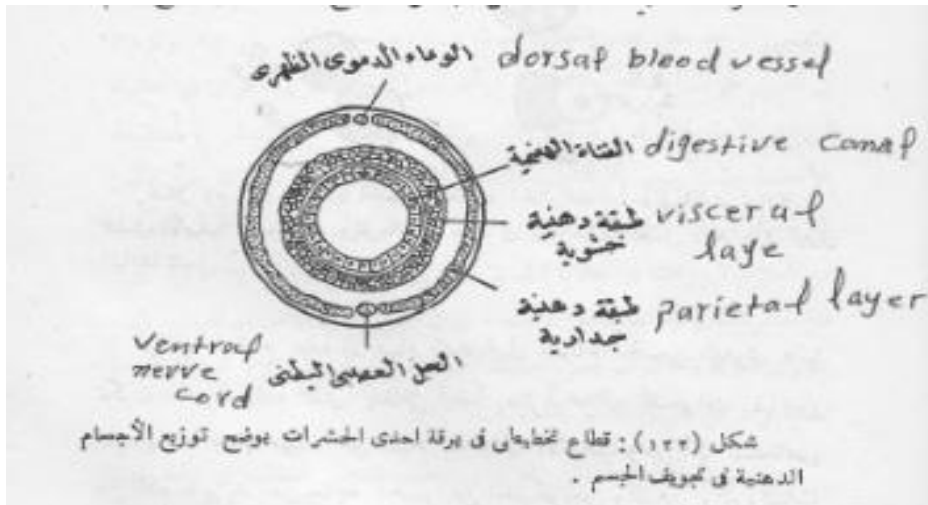 الوعاء الدموى الظهرى dorsal blood vessel
القناة الهضمية digestive canal
طبقة دهنية visceral
حشوية laye
طبقة دهنية parietal layer
جدارية
ventral
nerve
cord
الحبل العصبى البطنى
شكل (١٢٢) : قطاع تخطيطى فى يرقة احدى الحشرات يوضح توزيع الأجسام
الدهنية فى تجويف الجسم .